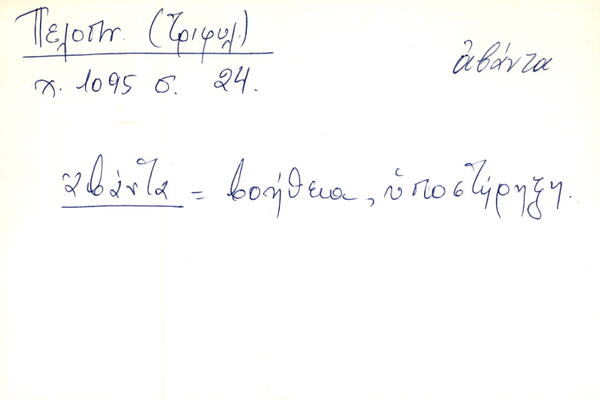 Πελοπν. (Τριφυλ.)
χ. 1095 σ. 24.
ἀβάντα
ἀβάντα = βοήθεια, ὑποστήρηξη.